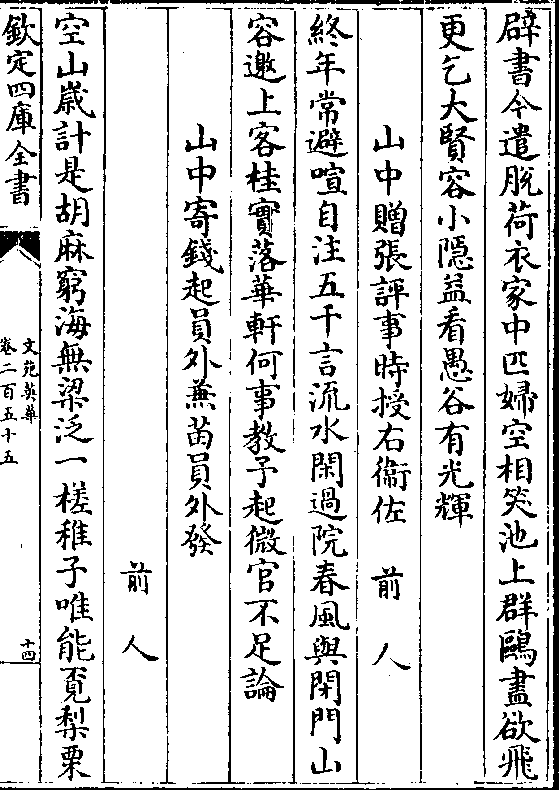 辟書今遣脫荷衣家中匹婦空相笑池上群鷗盡欲飛
更乞大賢容小隱益看愚谷有光輝
山中贈張評事時授右衞佐　前人
終年常避喧自注五千言流水閑過院春風與閉門山
容邀上客桂實落華軒何事教予起微官不足論
山中寄錢起員外兼苗員外發
前人
空山歲計是胡麻窮海無梁泛一槎稚子唯能覓梨栗
欽定四庫全書
文苑英華
卷二百五十五
十四